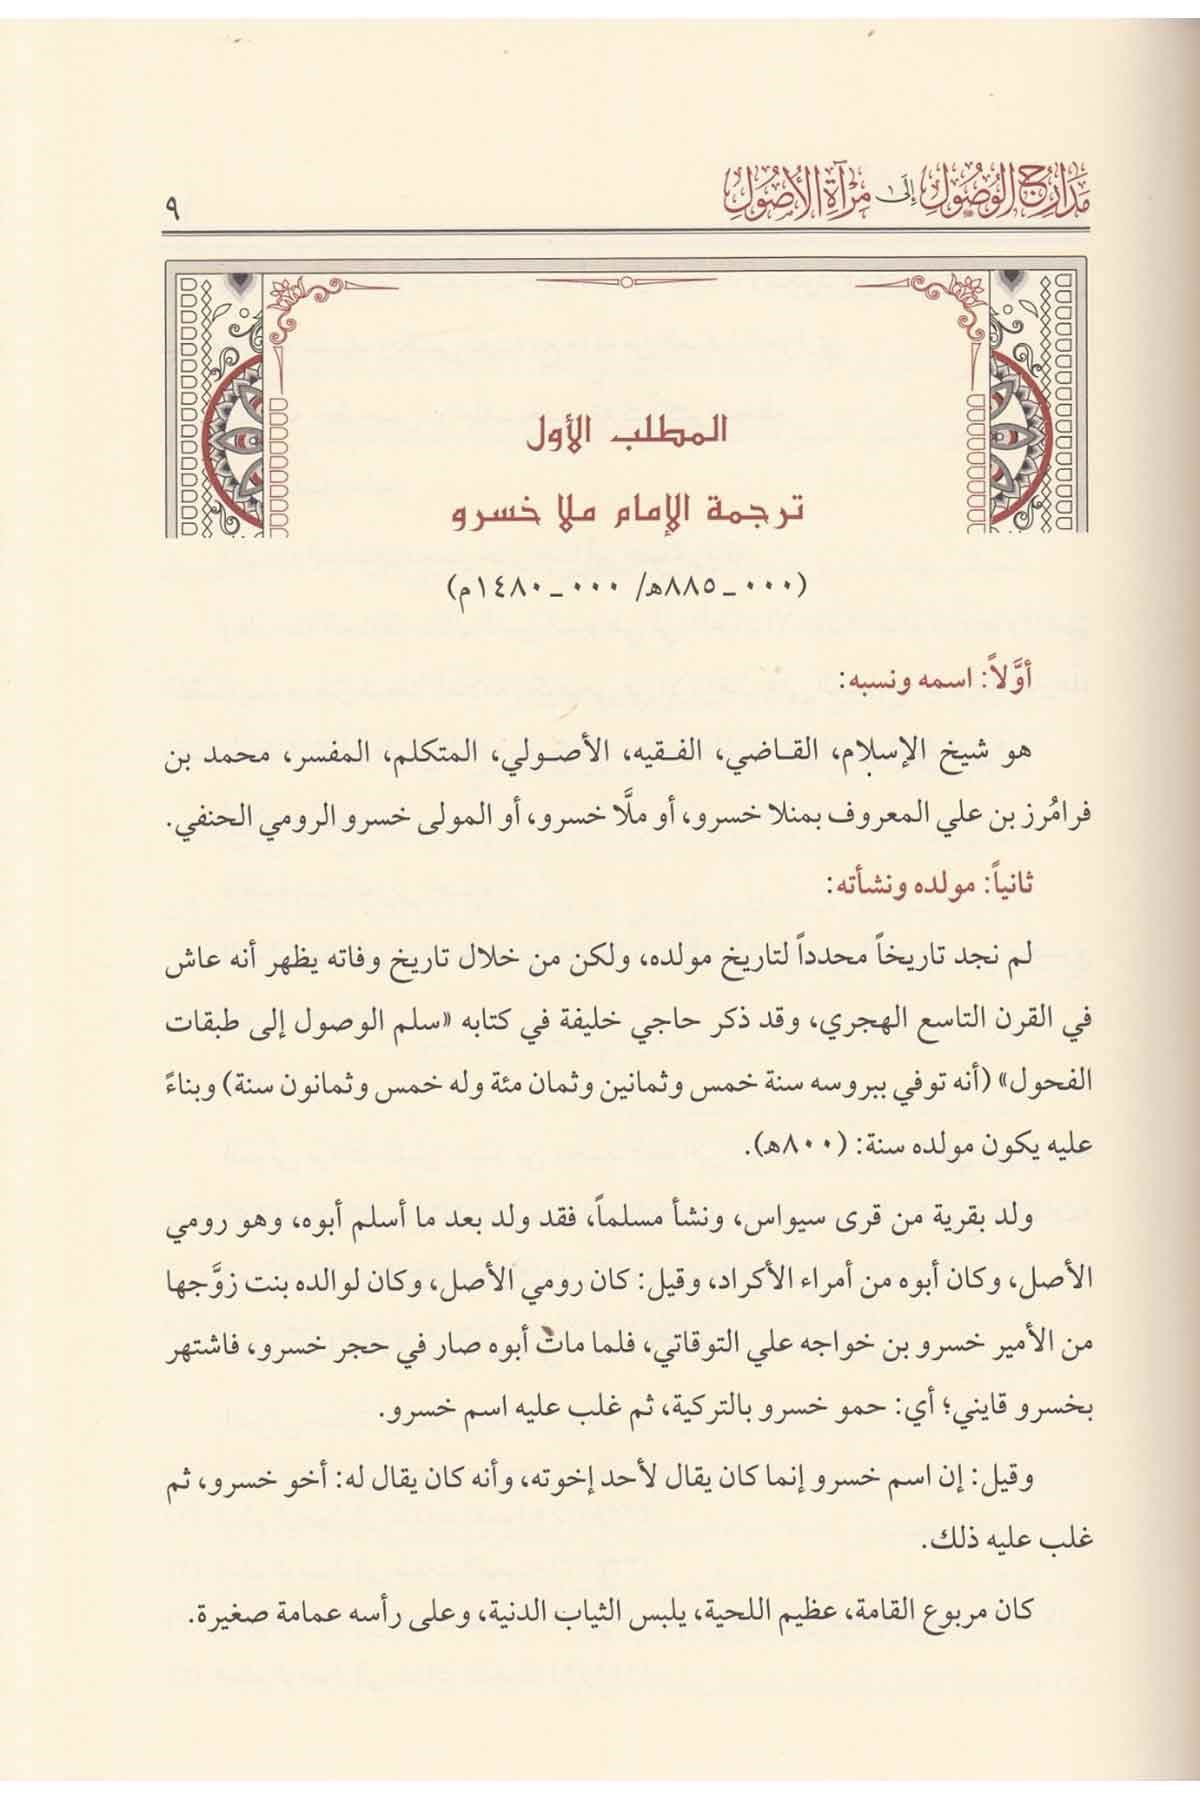 مَدَارِجُ الوُصُولِ إِلَى مِرْآةِ الأُصُولِ
٩
المطلب الأول
ترجمة الإمام ملا خسرو
(٠٠٠ - ٨٨٥هـ/ ٠٠٠ - ١٤٨٠م)
أوَّلاً: اسمه ونسبه:
هو شيخ الإسلام، القاضي، الفقيه، الأصولي، المتكلم، المفسر، محمد بن
فرامُرز بن علي المعروف بمنلا خسرو، أو ملَّا خسرو، أو المولى خسرو الرومي الحنفي.
ثانياً: مولده ونشأته:
لم نجد تاريخاً محدداً لتاريخ مولده، ولكن من خلال تاريخ وفاته يظهر أنه عاش
في القرن التاسع الهجري، وقد ذكر حاجي خليفة في كتابه «سلم الوصول إلى طبقات
الفحول» (أنه توفي ببروسه سنة خمس وثمانين وثمان مئة وله خمس وثمانون سنة) وبناءً
عليه يكون مولده سنة: (٨٠٠هـ).
ولد بقرية من قرى سيواس، ونشأ مسلماً، فقد ولد بعد ما أسلم أبوه، وهو رومي
الأصل، وكان أبوه من أمراء الأكراد، وقيل: كان رومي الأصل، وكان لوالده بنت زوَّجها
من الأمير خسرو بن خواجه علي التوقاتي، فلما مات أبوه صار في حجر خسرو، فاشتهر
بخسرو قايني؛ أي: حمو خسرو بالتركية، ثم غلب عليه اسم خسرو.
وقيل: إن اسم خسرو إنما كان يقال لأحد إخوته، وأنه كان يقال له: أخو خسرو، ثم
غلب عليه ذلك.
كان مربوع القامة، عظيم اللحية، يلبس الثياب الدنية، وعلى رأسه عمامة صغيرة.